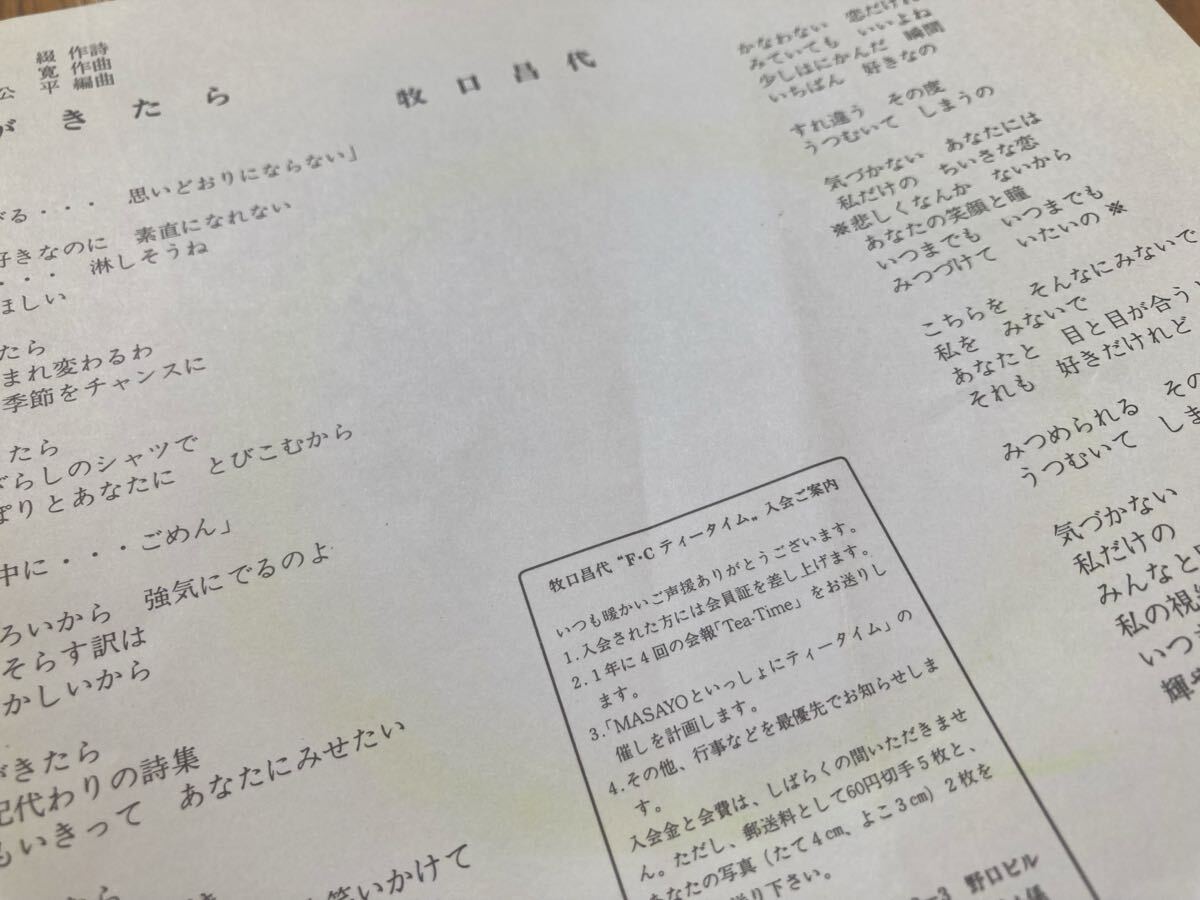 綴 作詩
寛 作曲
公 平 編曲
がきたら 牧口昌代
る・・・ 思いどおりにならない」
好きなのに 素直になれない
・・・ 淋しそうね
ほしい
たら
まれ変わるわ
季節をチャンスに
たら
らしのシャツで
ぽりとあなたに とびこむから
中に・・・ごめん」
ろいから 強気にでるのよ
そらす訳は
かしいから
がきたら
代わりの詩集
もいきって あなたにみせたい
笑いかけて
かなわない 恋だけれ
みていても いいよね
少しはにかんだ 瞬間
いちばん 好きなの
すれ違う その度
うつむいて しまうの
気づかない あなたには
私だけの ちいさな恋
※悲しくなんか ないから
あなたの笑顔と瞳
いつまでも いつまでも
みつづけて いたいの ※
こちらを そんなにみないで
私を みないで
あなたと 目と目が合う
それも 好きだけれど
みつめられる その
うつむいて しま
気づかない
私だけの
みんなと
私の視
いつ
輝
牧口昌代“F・Cティータイム„入会ご案内
いつも暖かいご声援ありがとうございます。
1.入会された方には会員証を差し上げます。
2.1年に4回の会報「Tea-Time」をお送りし
ます。
3.「MASAYOといっしょにティータイム」の
催しを計画します。
4.その他、行事などを最優先でお知らせしま
す。
入会金と会費は、しばらくの間いただきませ
ん。ただし、郵送料として60円切手5枚と、
あなたの写真(たて4cm、よこ3cm)2枚を
送り下さい。
-3 野口ビル
係